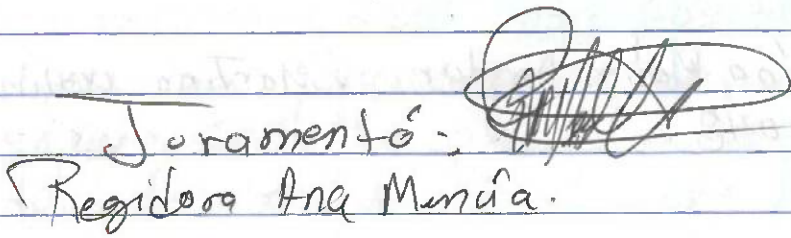 Joramentó:
Regidora Ana Mencía.